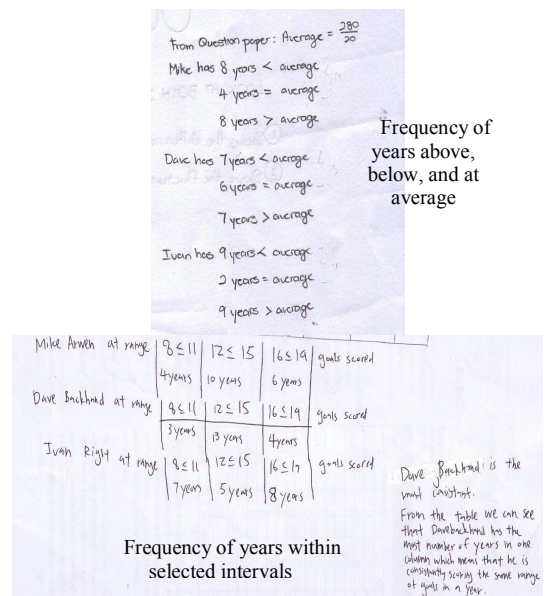 From Question paper: Average = 280/20
Mike has 8 years < average
4 years = average
8 years > average
Dave has 7 years < average
6 years = average
7 years > average
Ivan has 9 years < average
2 years = average
9 years > average
Frequency of
years above,
below, and at
average
Mike Arwen at range | 8 ≤ 11 | 12 ≤ 15 | 16 ≤ 19 | goals scored
4 years | 10 years | 6 years
Dave Backhand at range | 8 ≤ 11 | 12 ≤ 15 | 16 ≤ 19 | goals scored
3 years | 13 years | 4 years
Ivan Right at range | 8 ≤ 11 | 12 ≤ 15 | 16 ≤ 17 | goals scored
7 years | 5 years | 8 years
Dave Backhand is the
most consistant.
From the table we can see
that Davebackhand has the
most number of years in one
column which means that he is
consistantly scoring the same range
of goals in a year.
Frequency of years within
selected intervals